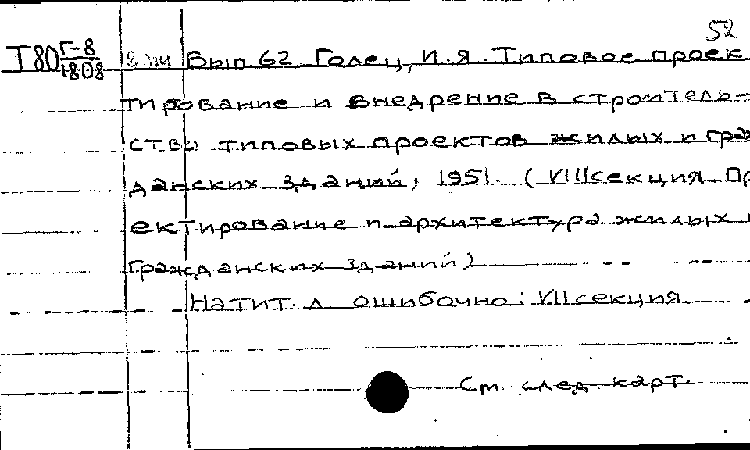 52
Т80 Г-8/1808 Вып 62 Голец, И.Я. Типовое проек
тирование и внедрение в строитель-
ство типовых проектов жилых и граж
данских зданий, 1951. (VIIIсекция Пр
ектирование и архитектура жилых и
гражданских зданий)
На тит. л ошибочно: VIIсекция
См. след. карт.